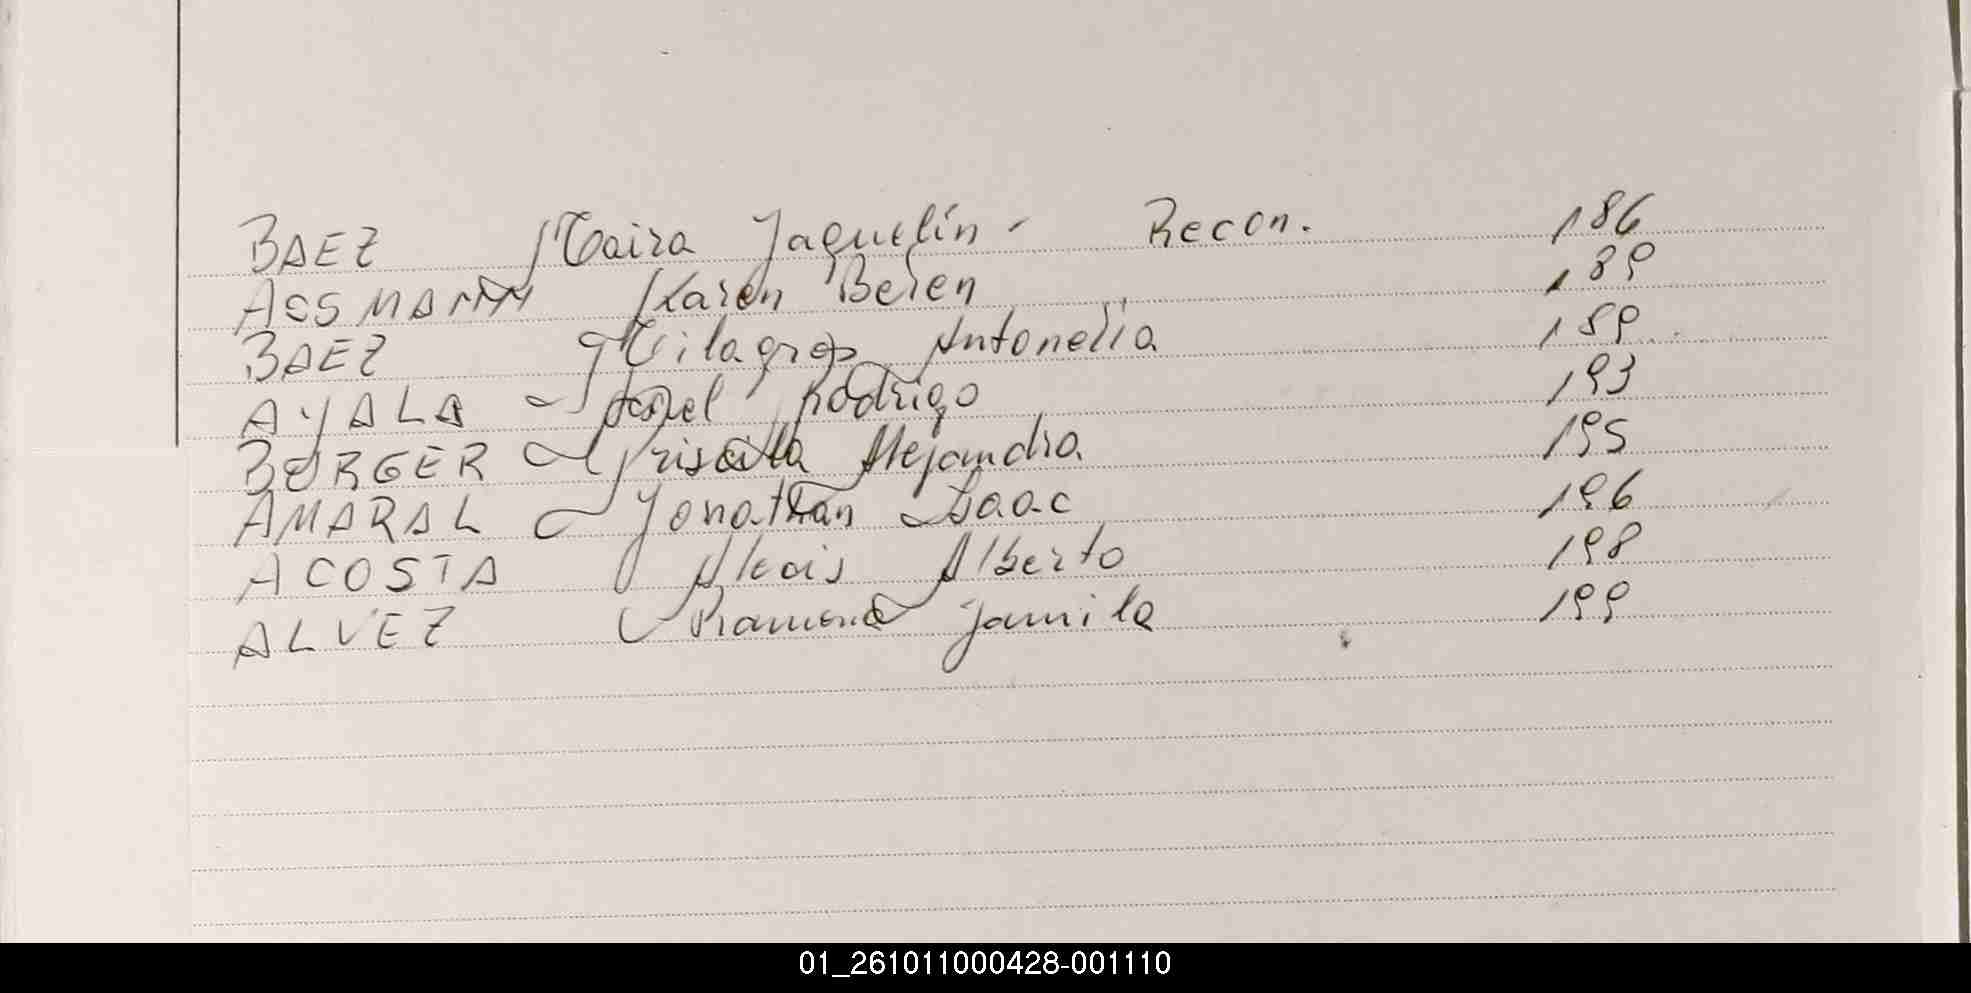 BAEZ Maira Jaquelín - Recon. 186
ASSMANN Karen Belen 189
BAEZ Milagros Antonella 189
AYALA Rodrigo 193
BERGER Priscilla Alejandra 195
AMARAL Jonathan Isaac 196
ACOSTA Alexis Alberto 198
ALVEZ Ramona Jamila 199
01_261011000428-001110